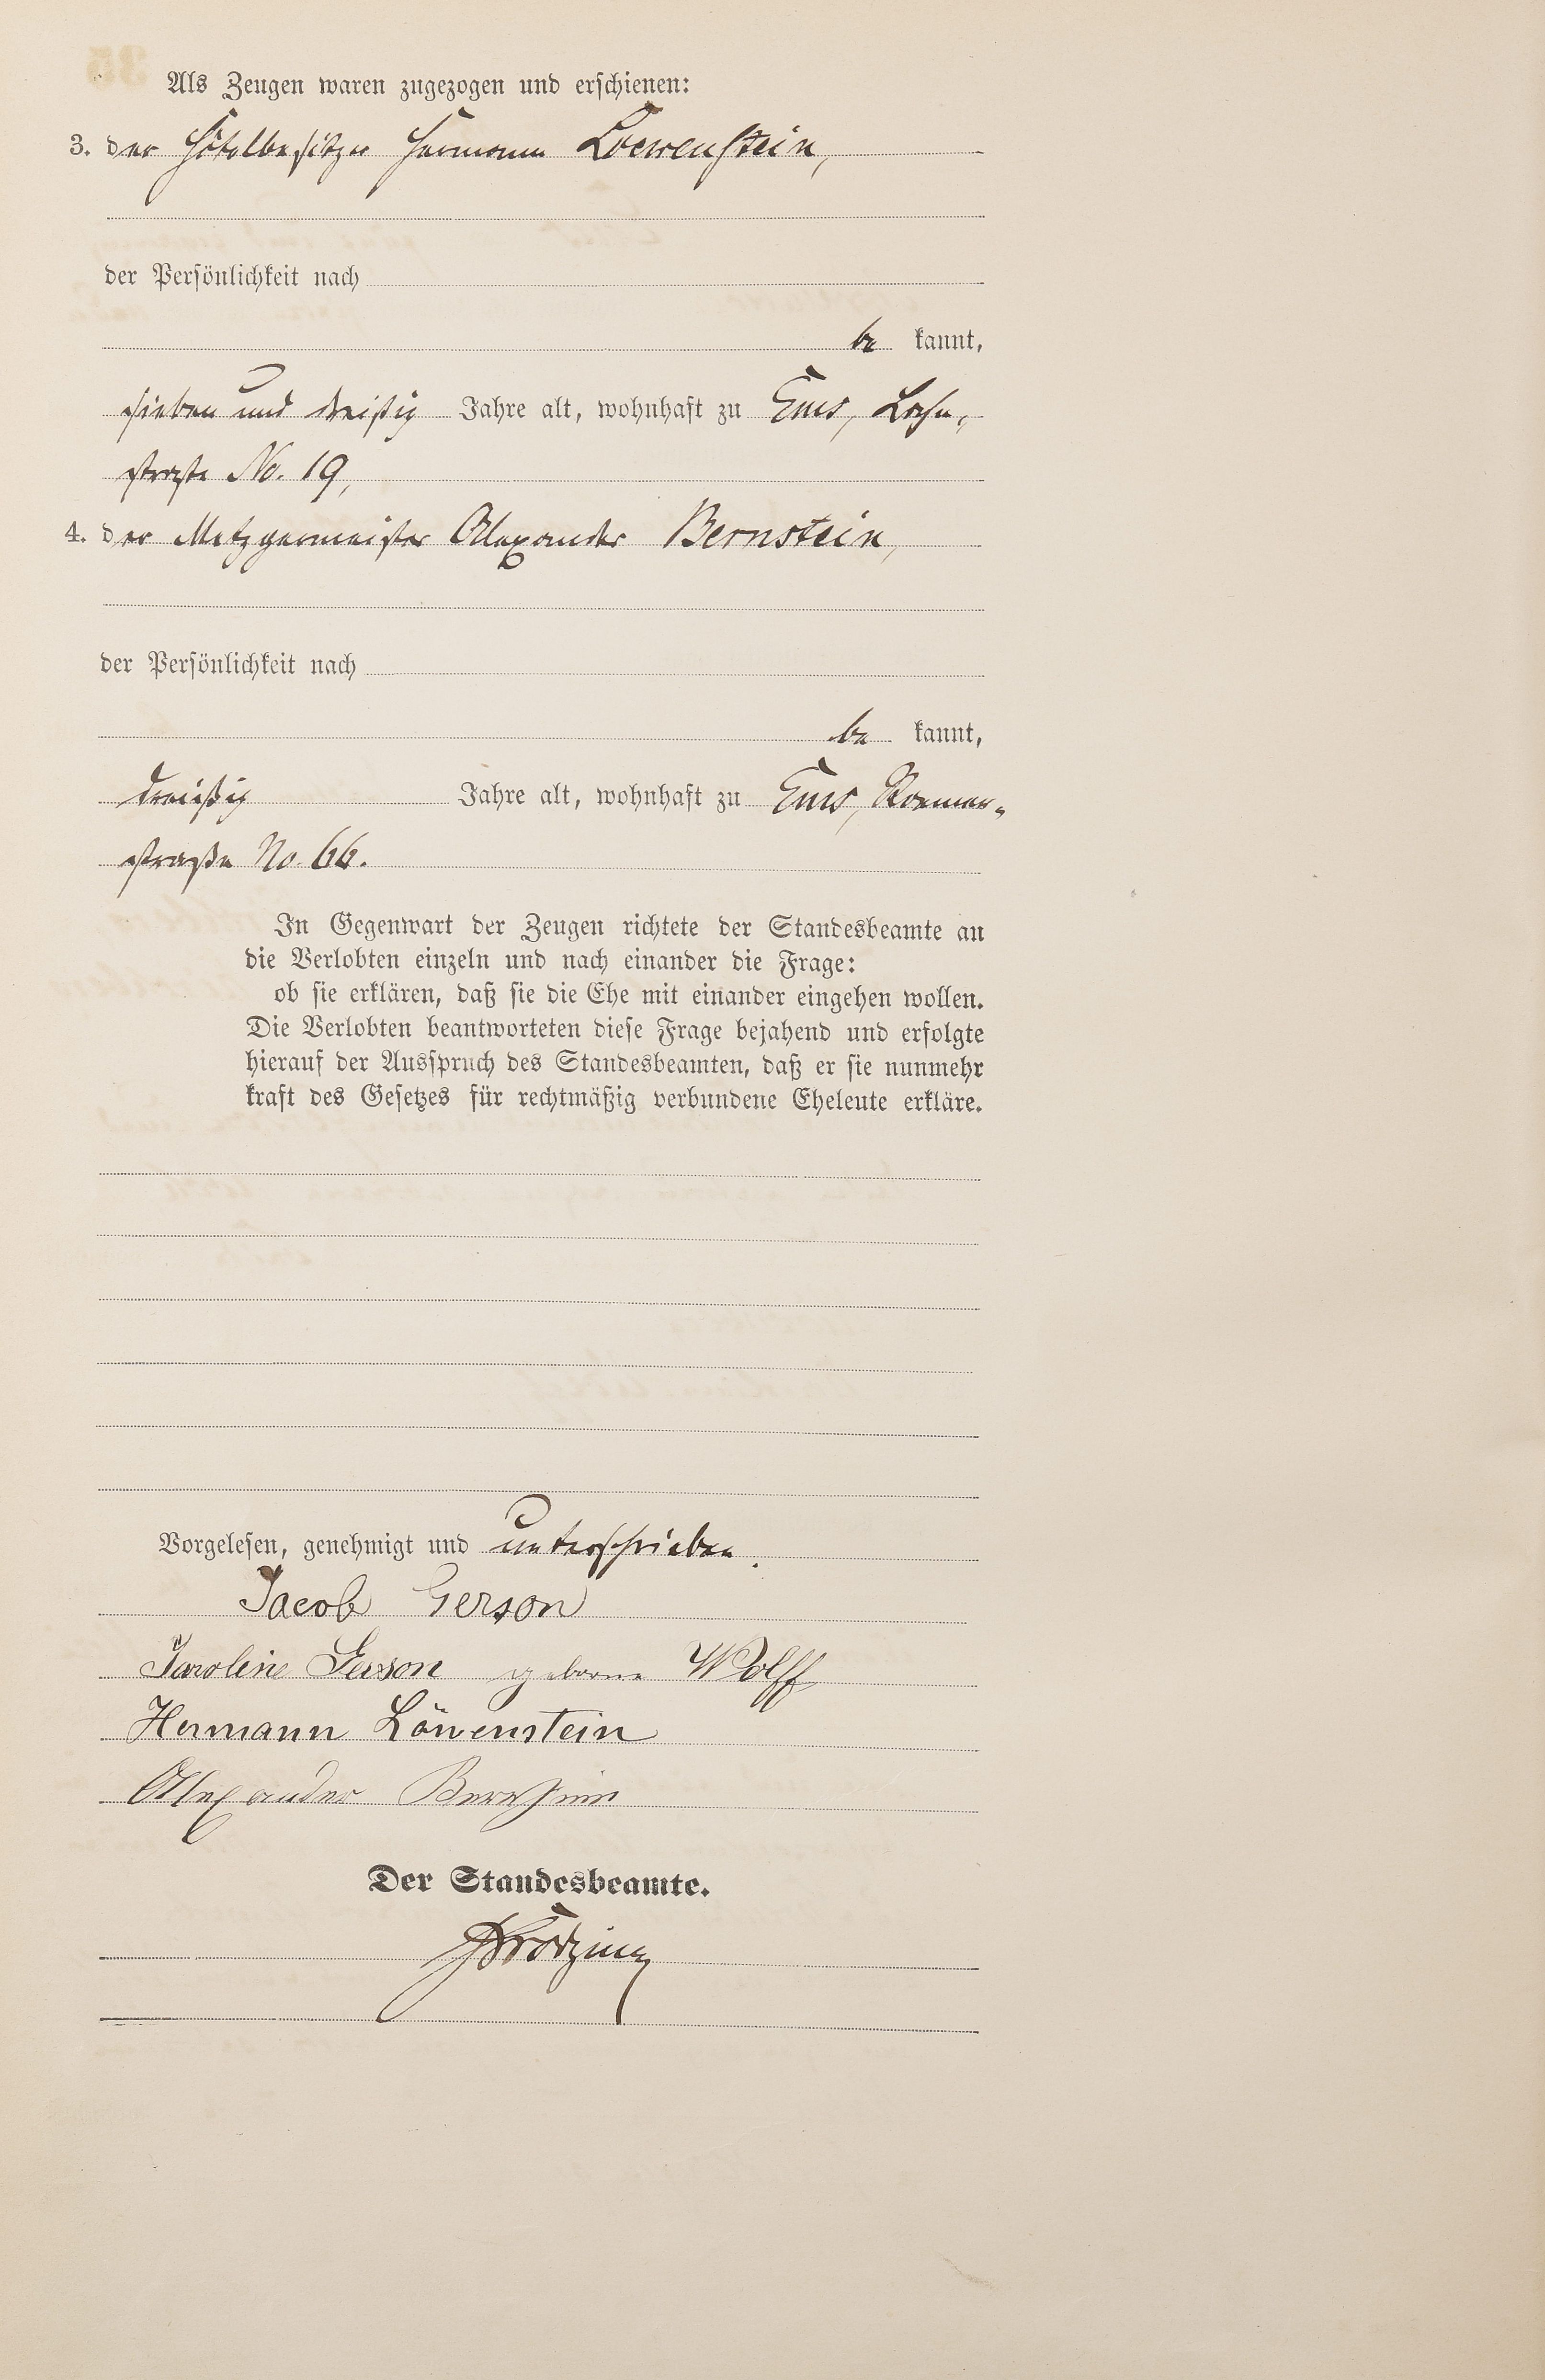 Als Zeugen waren zugezogen und erschienen:
3. der Hôtelbesitzer Hermann Loewenstein,
der Persönlichkeit nach
be kannt,
sieben und dreißig Jahre alt, wohnhaft zu Ems, Lahn-
straße No. 19,
4. der Metzgermeister Alexander Bernstein,
der Persönlichkeit nach
be kannt,
dreißig Jahre alt, wohnhaft zu Ems, Roemer-
straße No. 66.
In Gegenwart der Zeugen richtete der Standesbeamte an
die Verlobten einzeln und nach einander die Frage:
ob sie erklären, daß sie die Ehe mit einander eingehen wollen.
Die Verlobten beantworteten diese Frage bejahend und erfolgte
hierauf der Ausspruch des Standesbeamten, daß er sie nunmehr
kraft des Gesetzes für rechtmäßig verbundene Eheleute erkläre.
Vorgelesen, genehmigt und unterschrieben.
Jacob Gerson
Karoline Gerson geborne Wolff
Hermann Löwenstein
Alexander Bernstein
Der Standesbeamte.